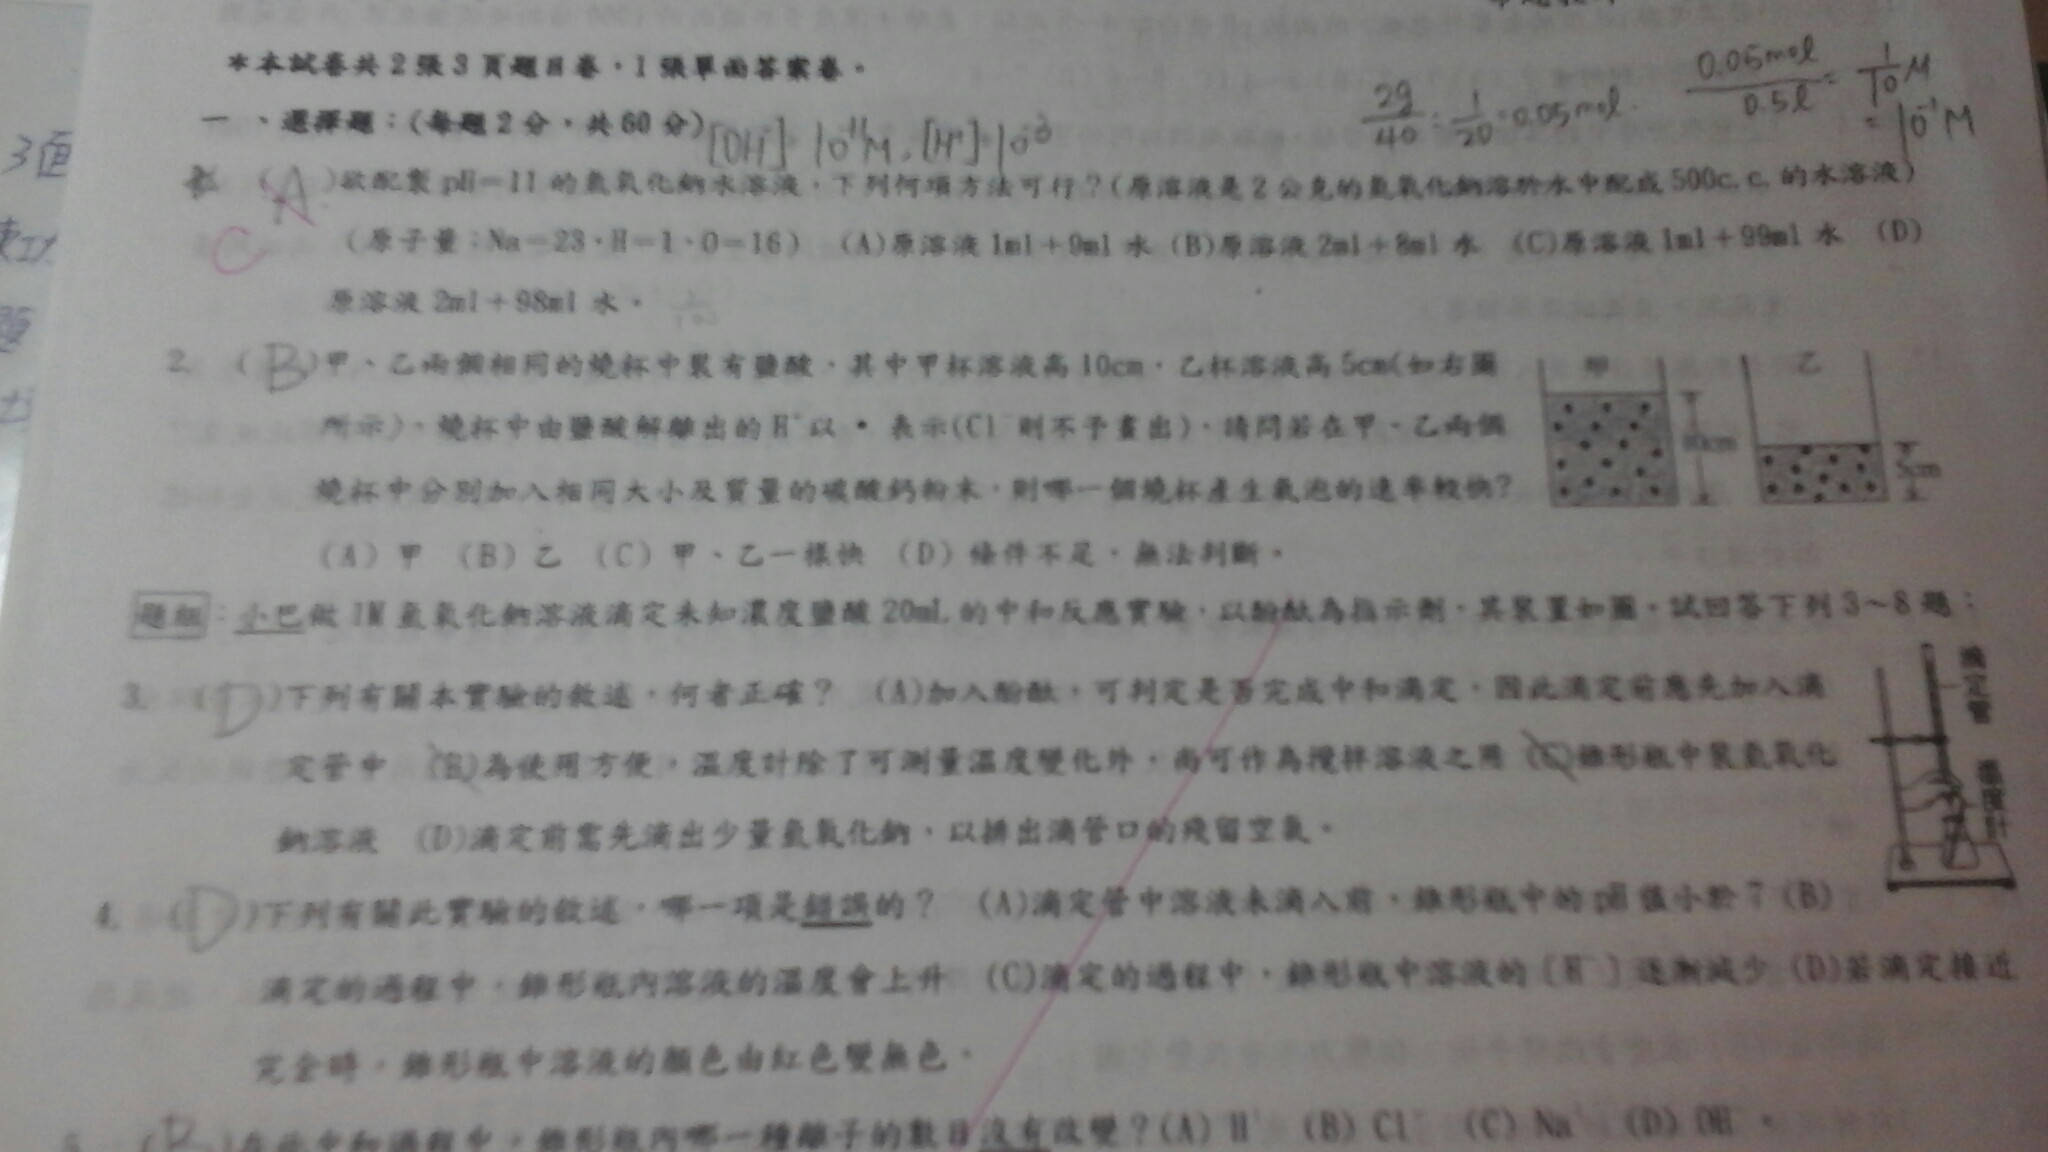 *本試卷共2張3頁題目卷，1張單面答案卷。
一、選擇題：(每題2分，共60分)
[OH⁻] 10⁻¹¹M，[H⁺] 10⁻³
2g/40 = 1/20 = 0.05mol.
0.05mol/0.5l = 1/10 M
= 10⁻¹M
3面
(A)欲配製 pH=11 的氫氧化鈉水溶液，下列何項方法可行？(原溶液是 2 公克的氫氧化鈉溶於水中配成 500c.c.的水溶液)
C
(原子量：Na=23、H=1、O=16) (A)原溶液 1ml+9ml 水 (B)原溶液 2ml+8ml 水 (C)原溶液 1ml+99ml 水 (D)
原溶液 2ml+98ml 水。
2. (B)甲、乙兩個相同的燒杯中裝有鹽酸，其中甲杯溶液高 10cm，乙杯溶液高 5cm(如右圖
所示)，燒杯中由鹽酸解離出的 H⁺以 • 表示(Cl⁻則不予畫出)，請問若在甲、乙兩個
燒杯中分別加入相同大小及質量的碳酸鈣粉末，則哪一個燒杯產生氣泡的速率較快?
(A) 甲 (B) 乙 (C) 甲、乙一樣快 (D) 條件不足，無法判斷。
甲
10cm
乙
5cm
題組：小巴做 1M 氫氧化鈉溶液滴定未知濃度鹽酸 20mL 的中和反應實驗，以酚酞為指示劑，其裝置如圖，試回答下列 3~8 題：
3. (D)下列有關本實驗的敘述，何者正確？ (A)加入酚酞，可判定是否完成中和滴定，因此滴定前應先加入滴
定管中 (B)為使用方便，溫度計除了可測量溫度變化外，尚可作為攪拌溶液之用 (C)錐形瓶中裝氫氧化
鈉溶液 (D)滴定前需先滴出少量氫氧化鈉，以擠出滴管口的殘留空氣。
滴定管
溫度計
4. (D)下列有關此實驗的敘述，哪一項是錯誤的？ (A)滴定管中溶液未滴入前，錐形瓶中的 pH 值小於 7 (B)
滴定的過程中，錐形瓶內溶液的溫度會上升 (C)滴定的過程中，錐形瓶中溶液的〔H⁺〕逐漸減少 (D)若滴定接近
完全時，錐形瓶中溶液的顏色由紅色變無色。
5. (B)在此中和過程中，錐形瓶內哪一種離子的數目沒有改變？(A) H⁺ (B) Cl⁻ (C) Na⁺ (D) OH⁻。